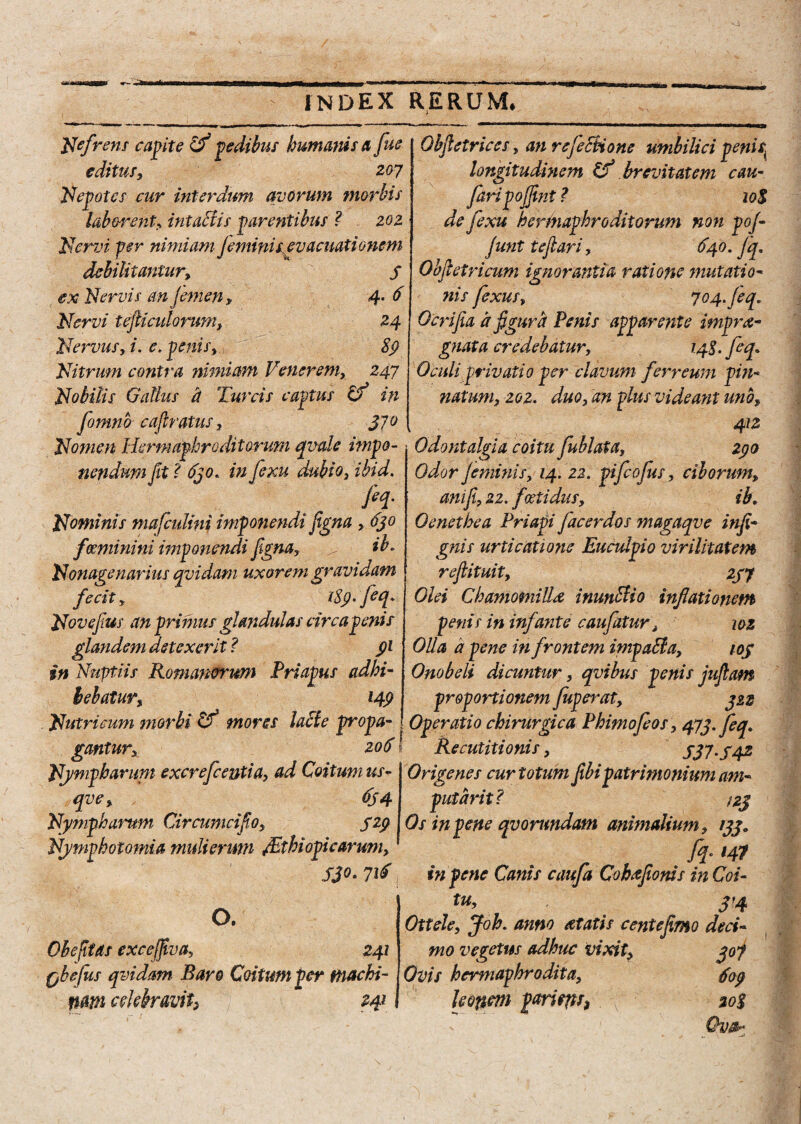 INDEX RERUM.
Nefrens capite & pedibus humanis a ſue
editus, 207
Nepotes cur interdum avorum morbis
laborent, intactis parentibus ? 202
Nervi per nimiam ſeminis evacuationem
debilitantur, 5
ex Nervis an ſemen, 4. 6
Nervi teſticulorum, 24
Nervus, i. e. penis, 89
Nitrum contra nimiam Venerem, 247
Nobilis Gallus à Turcis captus & in
ſomno caſtratus, 370
Nomen Hermaphroditorum qvale impo-
nendum ſit ? 630. in ſexu dubio, ibid.
ſeq.
Nominis maſculini imponendi ſigna , 630
fœminini imponendi ſigna, ib.
Nonagenarius qvidam uxorem gravidam
fecit, 189. ſeq.
Noveſius an primus glandulas circa penis
glandem detexerit ? 91
in Nuptiis Romanorum Priapus adhi-
bebatur, 149
Nutricum morbi & mores lacte propa-
gantur, 206
Nympharum excreſcentia, ad Coitum us-
qve, 654
Nympharum Circumciſio, 529
Nymphotomia mulierum Æthiopicarum,
530. 716
O.
Obeſitas exceſſiva, 241
Obeſus qvidam Baro Coitum per machi-
nam celebravit, 241
Obſtetrices, an reſectione umbilici penis
longitudinem & brevitatem cau-
ſari poſſint ? 108
de ſexu hermaphroditorum non poſ-
ſunt teſtari, 640. ſq.
Obſtetricum ignorantia ratione mutatio-
nis ſexus, 704. ſeq.
Ocriſia à figurâ Penis apparente impræ-
gnata credebatur, 148. ſeq.
Oculi privatio per clavum ferreum pin-
natum, 202. duo, an plus videant uno,
412
Odontalgia coitu ſublata, 290
Odor ſeminis, 14. 22. piſcoſus, ciborum,
aniſi, 22. fœtidus, ib.
Oenethea Priapi ſacerdos magaqve inſi-
gnis urticatione Euculpio virilitatem
reſtituit, 257
Olei Chamomillæ inunctio inflationem
penis in infante cauſatur, 102
Olla à pene in frontem impacta, 105
Onobeli dicuntur, qvibus penis juſtam
proportionem ſuperat, 322
Operatio chirurgica Phimoſeos, 473. ſeq.
Recutitionis, 537. 542
Origenes cur totum ſibi patrimonium am-
putârit ? 123
Os in pene qvorundam animalium, 133.
ſq. 147
in pene Canis cauſa Cohæſionis in Coi-
tu, 314
Ottele, Joh. anno ætatis centeſimo deci-
mo vegetus adhuc vixit, 307
Ovis hermaphrodita, 609
leonem pariens, 208
Ova-